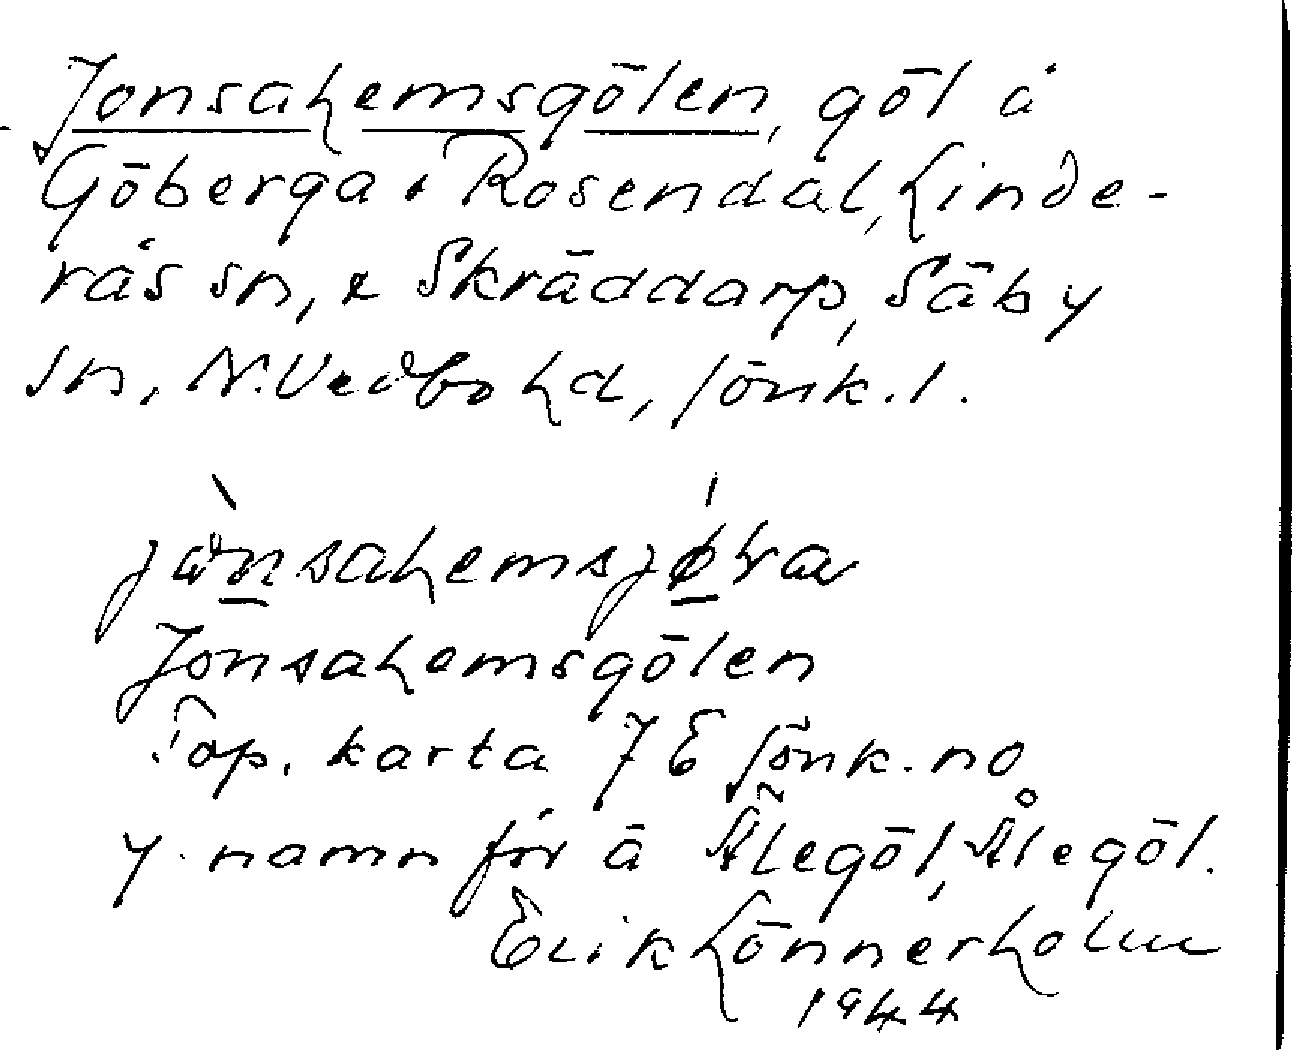 Jonsahemsgölen, göl å
Göberga o Rosendal, Linde-
rås sn, & Skräddarp, Säby
sn, N. Vedbo hd, Jönk. l.
Jonsahemsgölen
Top. karta 7 E Jönk. no
y. namn för ä Älegöl, Ålegöl.
Erik Lönnerholm
1944